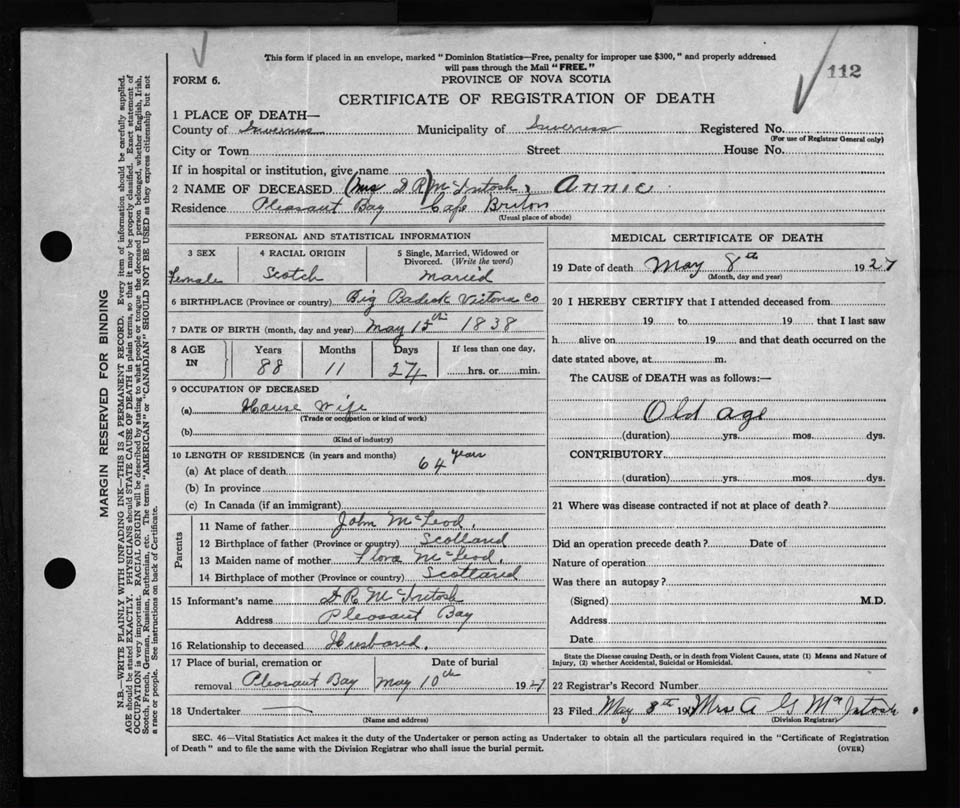 This form if placed in an envelope, marked " Dominion Statistics—Free, penalty for improper use $300, " and properly addressed
will pass through the Mail "FREE."
112
FORM 6.
PROVINCE OF NOVA SCOTIA
CERTIFICATE OF REGISTRATION OF DEATH
1 PLACE OF DEATH—
County of Inverness Municipality of Inverness Registered No.
(For use of Registrar General only)
City or Town Street House No.
If in hospital or institution, give name
2 NAME OF DECEASED (Mrs D. R) McIntosh, Annie
Residence Pleasant Bay Cape Briton
(Usual place of abode)
PERSONAL AND STATISTICAL INFORMATION
3 SEX 4 RACIAL ORIGIN 5 Single, Married, Widowed or
Divorced. (Write the word)
Female Scotch Maried
6 BIRTHPLACE (Province or country) Big Badick Victoria Co
7 DATE OF BIRTH (month, day and year) May 15th 1838
8 AGE IN Years Months Days If less than one day,
88 11 24 hrs. or min.
9 OCCUPATION OF DECEASED
(a) House Wife
(Trade or occupation or kind of work)
(b)
(Kind of industry)
10 LENGTH OF RESIDENCE (in years and months)
(a) At place of death 64 years
(b) In province
(c) In Canada (if an immigrant)
Parents
11 Name of father John McLeod,
12 Birthplace of father (Province or country) Scotland
13 Maiden name of mother Flora McLeod,
14 Birthplace of mother (Province or country) Scotland
15 Informant's name D. R. McIntosh
Address Pleasant Bay
16 Relationship to deceased Husband,
17 Place of burial, cremation or Date of burial
removal Pleasant Bay May 10th 1927
18 Undertaker
(Name and address)
MEDICAL CERTIFICATE OF DEATH
19 Date of death May 8th 1927
(Month, day and year)
20 I HEREBY CERTIFY that I attended deceased from
19 to 19 that I last saw
h alive on 19 and that death occurred on the
date stated above, at m.
The CAUSE of DEATH was as follows:—
Old age
(duration) yrs. mos. dys.
CONTRIBUTORY
(duration) yrs. mos. dys.
21 Where was disease contracted if not at place of death?
Did an operation precede death? Date of
Nature of operation
Was there an autopay?
(Signed) M.D.
Address
Date
State the Disease causing Death, or in death from Violent Causes, state (1) Means and Nature of
Injury, (2) whether Accidental, Suicidal or Homicidal.
22 Registrar's Record Number
23 Filed May 8th 19 Mrs A G McIntosh.
(Division Registrar)
SEC. 46—Vital Statistics Act makes it the duty of the Undertaker or person acting as Undertaker to obtain all the particulars required in the "Certificate of Registration
of Death" and to file the same with the Division Registrar who shall issue the burial permit. (OVER)
MARGIN RESERVED FOR BINDING
N.B.—WRITE PLAINLY WITH UNFADING INK—THIS IS A PERMANENT RECORD. Every item of information should be carefully supplied.
AGE should be stated EXACTLY. PHYSICIANS should STATE CAUSE OF DEATH in plain terms, so that it may be properly classified. Exact statement of
OCCUPATION is very important. RACIAL ORIGIN will be described by stating to what people or tongue the deceased person belonged, whether English, Irish,
Scotch, French, German, Russian, Ruthenian, etc. The terms "AMERICAN" or "CANADIAN" SHOULD NOT BE USED as they express citizenship but not
a race or people. See instructions on back of Certificate.